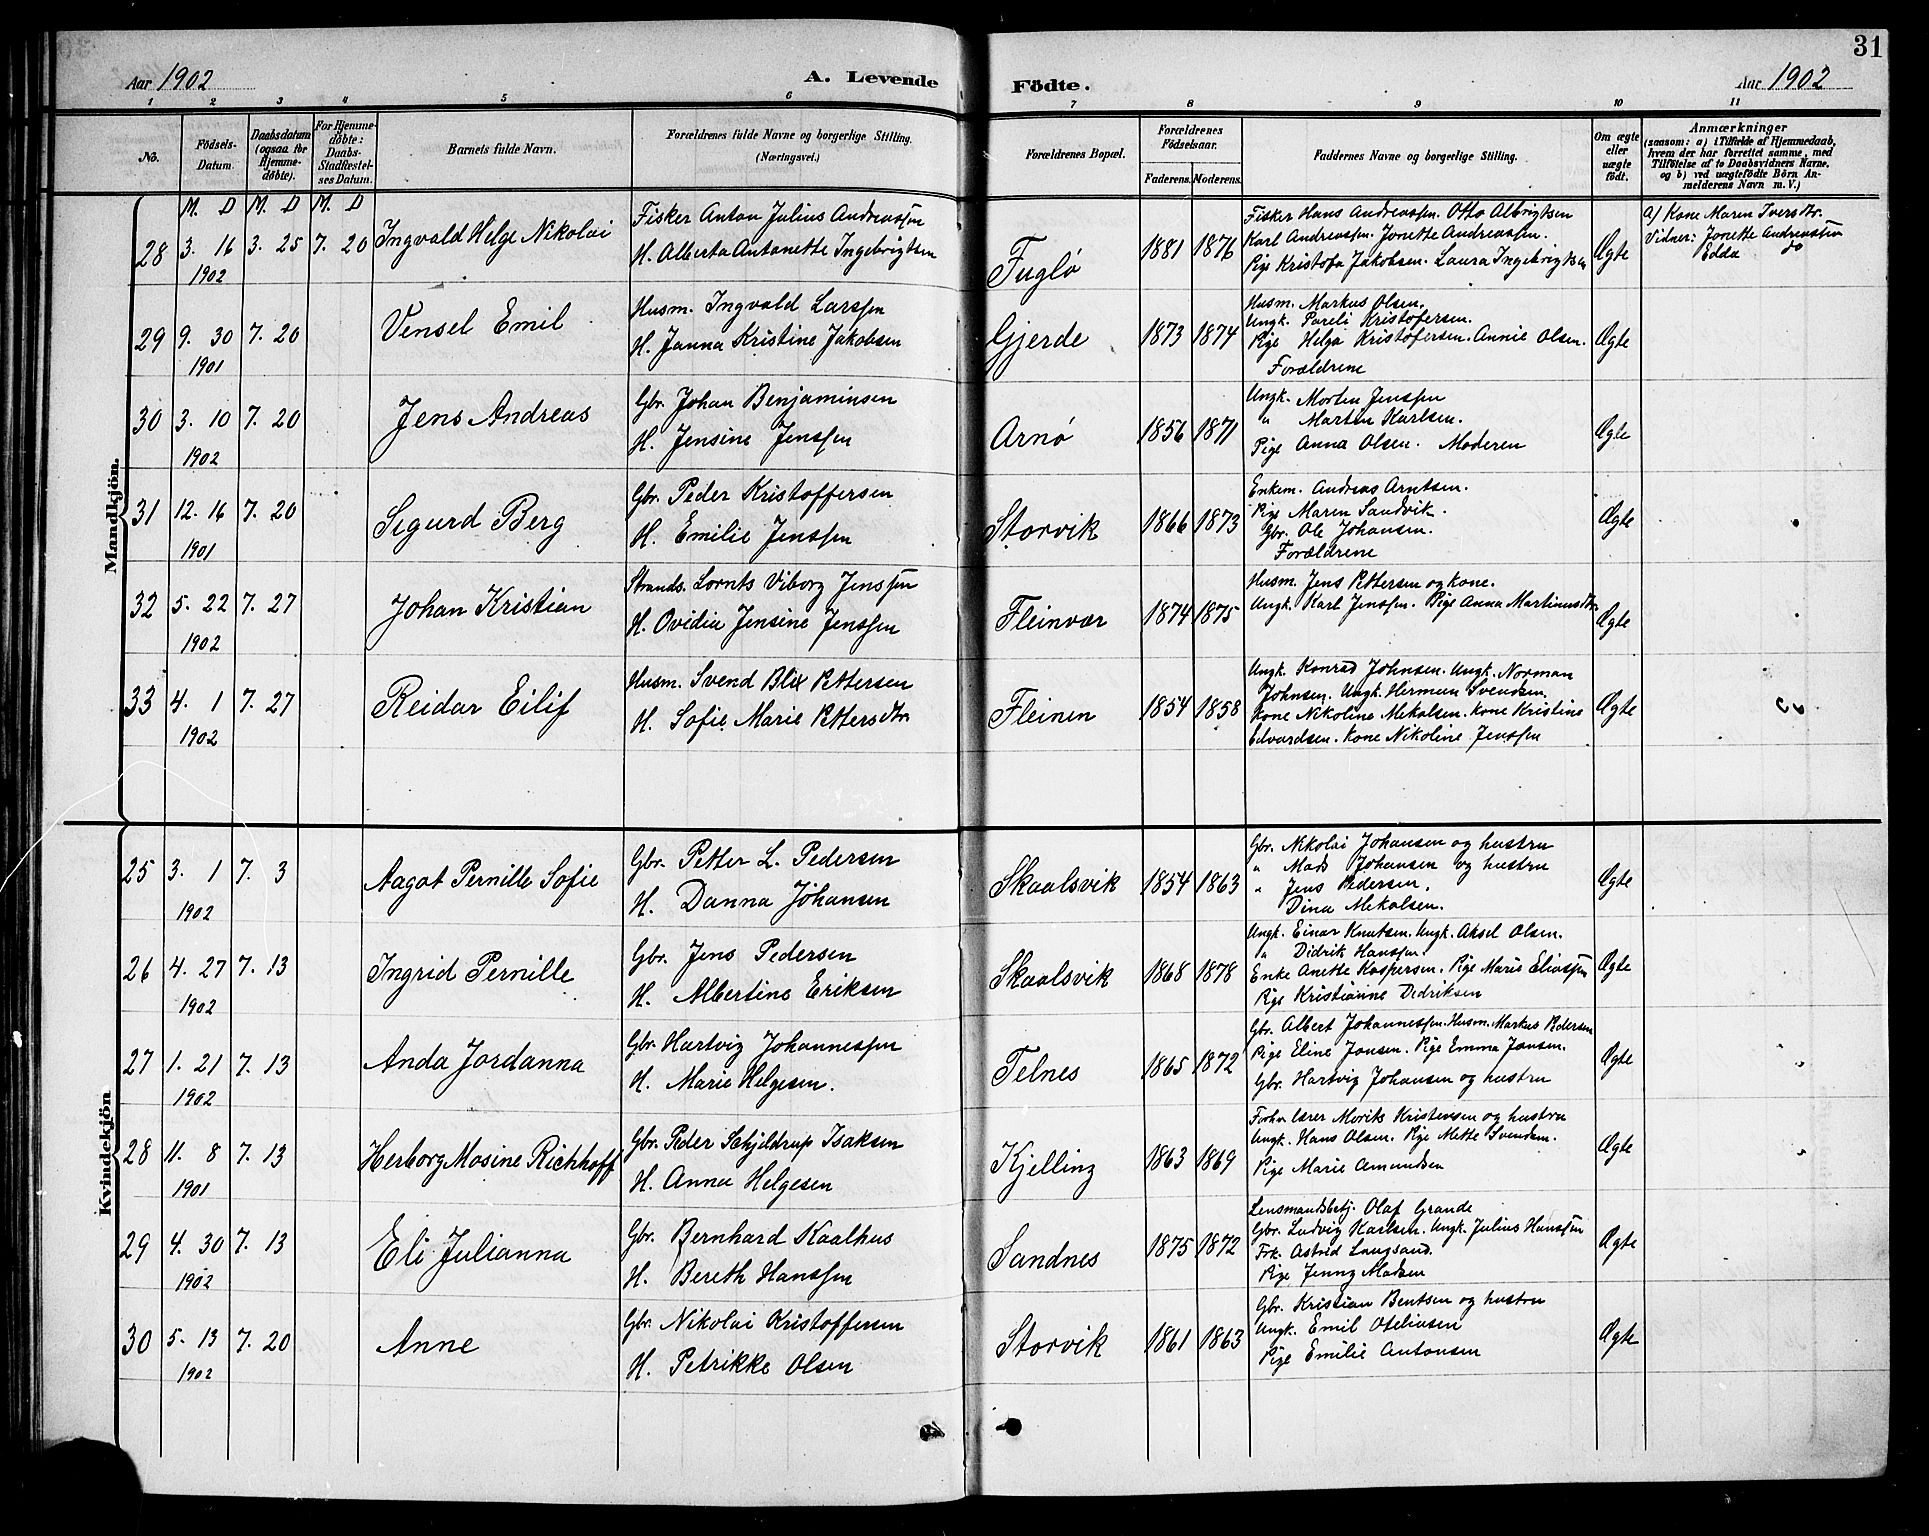 31
Aar 1902
A. Levende
Födte.
Aar 1902
1 2 3 4 5 6 7 8 9 10 11
No.
Födsels-
Datum.
Daabsdatum
(ogsaa for
Hjemme-
döbte).
For Hjemme-
döbte:
Daabs-
Stadfæstel-
ses Datum.
Barnets fulde Navn.
Forældrenes fulde Navne og borgerlige Stilling.
(Næringsvei.)
Forældrenes Bopæl.
Forældrenes
Födselsaar.
Faderens.
Moderens.
Faddernes Navne og borgerlige Stilling.
Om ægte
eller
uægte
födt.
Anmærkninger
(saasom: a) i Tilfælde af Hjemmedaab,
hvem der har forrettet samme, med
Tilföielse af to Daabsvidners Navne.
og b) ved uægtefödte Börn An-
melderens Navn m. V.)
Mandkjön.
M. D M. D M. D
28 3. 16 3. 25 7. 20
1902
Ingvald Helge Nikolai
Fisker Anton Julius Andreassen
H. Alberta Antonette Ingebrigtsen
Fuglø
1881 1876
Fisker Hans Andreassen. Otto Albrigtsen
Karl Andreassen. Jonette Andreassen.
Pige Kristofa Jakobsen. Laura Ingebrigtsen
Ægte
a) Kone Maren Iversdtr.
Vidner: Jonette Andreassen
Edda do
29 9. 30 7. 20
1901
Vensel Emil
Husm. Ingvald Larssen
H. Janna Kristine Jakobsen
Gjerde
1873 1874
Husm. Markus Olsen.
Ungk. Pareli Kristofersen.
Pige Helga Kristofersen. Annie Olsen.
Forældrene
Ægte
30 3. 10 7. 20
1902
Jens Andreas
Gbr. Johan Benjaminsen
H. Jensine Jenssen
Arnø
1856 1871
Ungk. Morten Jenssen
" Martin Karlsen.
Pige Anna Olsen. Moderen
Ægte
31 12. 16 7. 20
1901
Sigurd Berg
Gbr. Peder Kristoffersen
H. Emilie Jenssen
Storvik
1866 1873
Enkem. Andreas Arntsen.
Pige Maren Sandvik.
Gbr. Ole Johansen.
Forældrene
Ægte
32 5. 22 7. 27
1902
Johan Kristian
Strands. Lornts Viborg Jenssen
H. Ovidia Jensine Jenssen
Fleinvær
1874 1875
Husm. Jens Pettersen og kone.
Ungk. Karl Jenssen. Pige Anna Martinusdtr
Ægte
33 4. 1 7. 27
1902
Reidar Eilif
Husm. Svend Blix Pettersen
H. Sofie Marie Pettersdtr
Fleinen
1854 1858
Ungk. Konrad Johnsen. Ungk. Norman
Johnsen. Ungk. Herman Svendsen.
Kone Nikoline Mekalsen. Kone Kristine
Edvardsen. Kone Nikoline Jenssen
Ægte
Kvindekjön
25 3. 1 7. 3
1902
Aagot Pernille Sofie
Gbr. Petter L. Pedersen
H. Danna Johansen
Skaalsvik
1854 1863
Gbr. Nikolai Johansen og hustru
" Mads Johansen og hustru
" Jens Pedersen.
Dina Mekalsen.
Ægte
26 4. 27 7. 13
1902
Ingrid Pernille
Gbr. Jens Pedersen
H. Albertine Eriksen
Skaalsvik
1868 1878
Ungk. Einar Knutsen. Ungk. Aksel Olsen.
" Didrik Hanssen
Enke Anette Kaspersen. Pige Marie Eliassen
Pige Kristianne Dedriksen
Ægte
27 1. 21 7. 13
1902
Anda Jordanna
Gbr. Hartvig Johannessen
H. Marie Helgesen.
Telnes
1865 1872
Gbr. Albert Johannessen. Husm. Markus Pedersen
Pige Eline Jansen. Pige Emma Jansen.
Gbr. Hartvig Johansen og hustru
Ægte
28 11. 8 7. 13
1901
Herborg Mosine Richhoff
Gbr. Peder Schjeldrup Isaksen
H. Anna Helgesen
Kjelling
1863 1869
Forh. lærer Moriks Kristensen og hustru
Ungk. Hans Olsen. Pige Mette Svendsen.
Pige Marie Amundsen
Ægte
29 4. 30 7. 13
1902
Eli Julianna
Gbr. Bernhard Kaalhus
H. Bereth Hanssen
Sandnes
1875 1872
Lensmandsbetj. Olaf Grande
Gbr. Ludvig Karlsen. Ungk. Julius Hanssen
Frk. Astrid Langsand.
Pige Jenny Madsen
Ægte
30 5. 13 7. 20
1902
Anne
Gbr. Nikolai Kristoffersen
H. Petrikke Olsen
Storvik
1861 1863
Gbr. Kristian Bentsen og hustru
Ungk. Emil Oteliusen
Pige Emilie Antonsen
Ægte